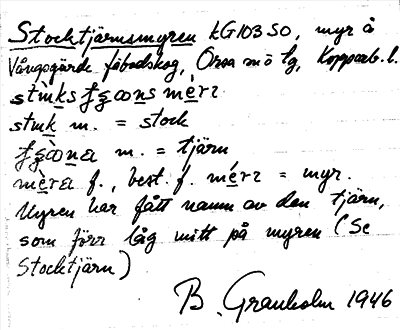 Stocktjärnsmyren kG103 SO, myr å
Vångsgärde fäbodskog, Orsa snö lg, Kopparb. l.
stm̀ks fʒæns mèrɪ
stmk m. = stock
m. = tjärn
mèra f., best. f. mérɪ = myr.
Myren har fått namn av den tjärn,
som förr låg mitt på myren (Se
Stocktjärn)
B. Granholm 1946